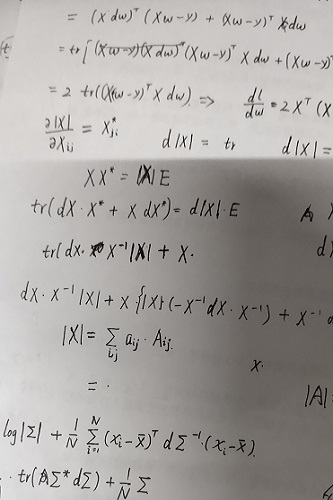 = (X dw)ᵀ (Xw-y) + (Xw-y)ᵀ X dw
= tr[ (Xw-y)ᵀ X dw + (Xw-y)
= 2 tr((Xw-y)ᵀ X dw) => dl/dw = 2Xᵀ(X
∂|X|/∂Xij = X*ji d|X| = tr d|X| =
XX* = |X|E
tr(dX·X* + X dX*) = d|X|·E
tr(dX· X⁻¹|X| + X· d
dX·X⁻¹|X| + X{|X|(-X⁻¹dX·X⁻¹) + X⁻¹ d
|X| = Σij aij · Aij. X.
= . |A|
log|Σ| + 1/N Σ_{i=1}^{N} (xi-x̄)ᵀ dΣ⁻¹·(xi-x̄).
· tr( Σ* dΣ) + 1/N Σ